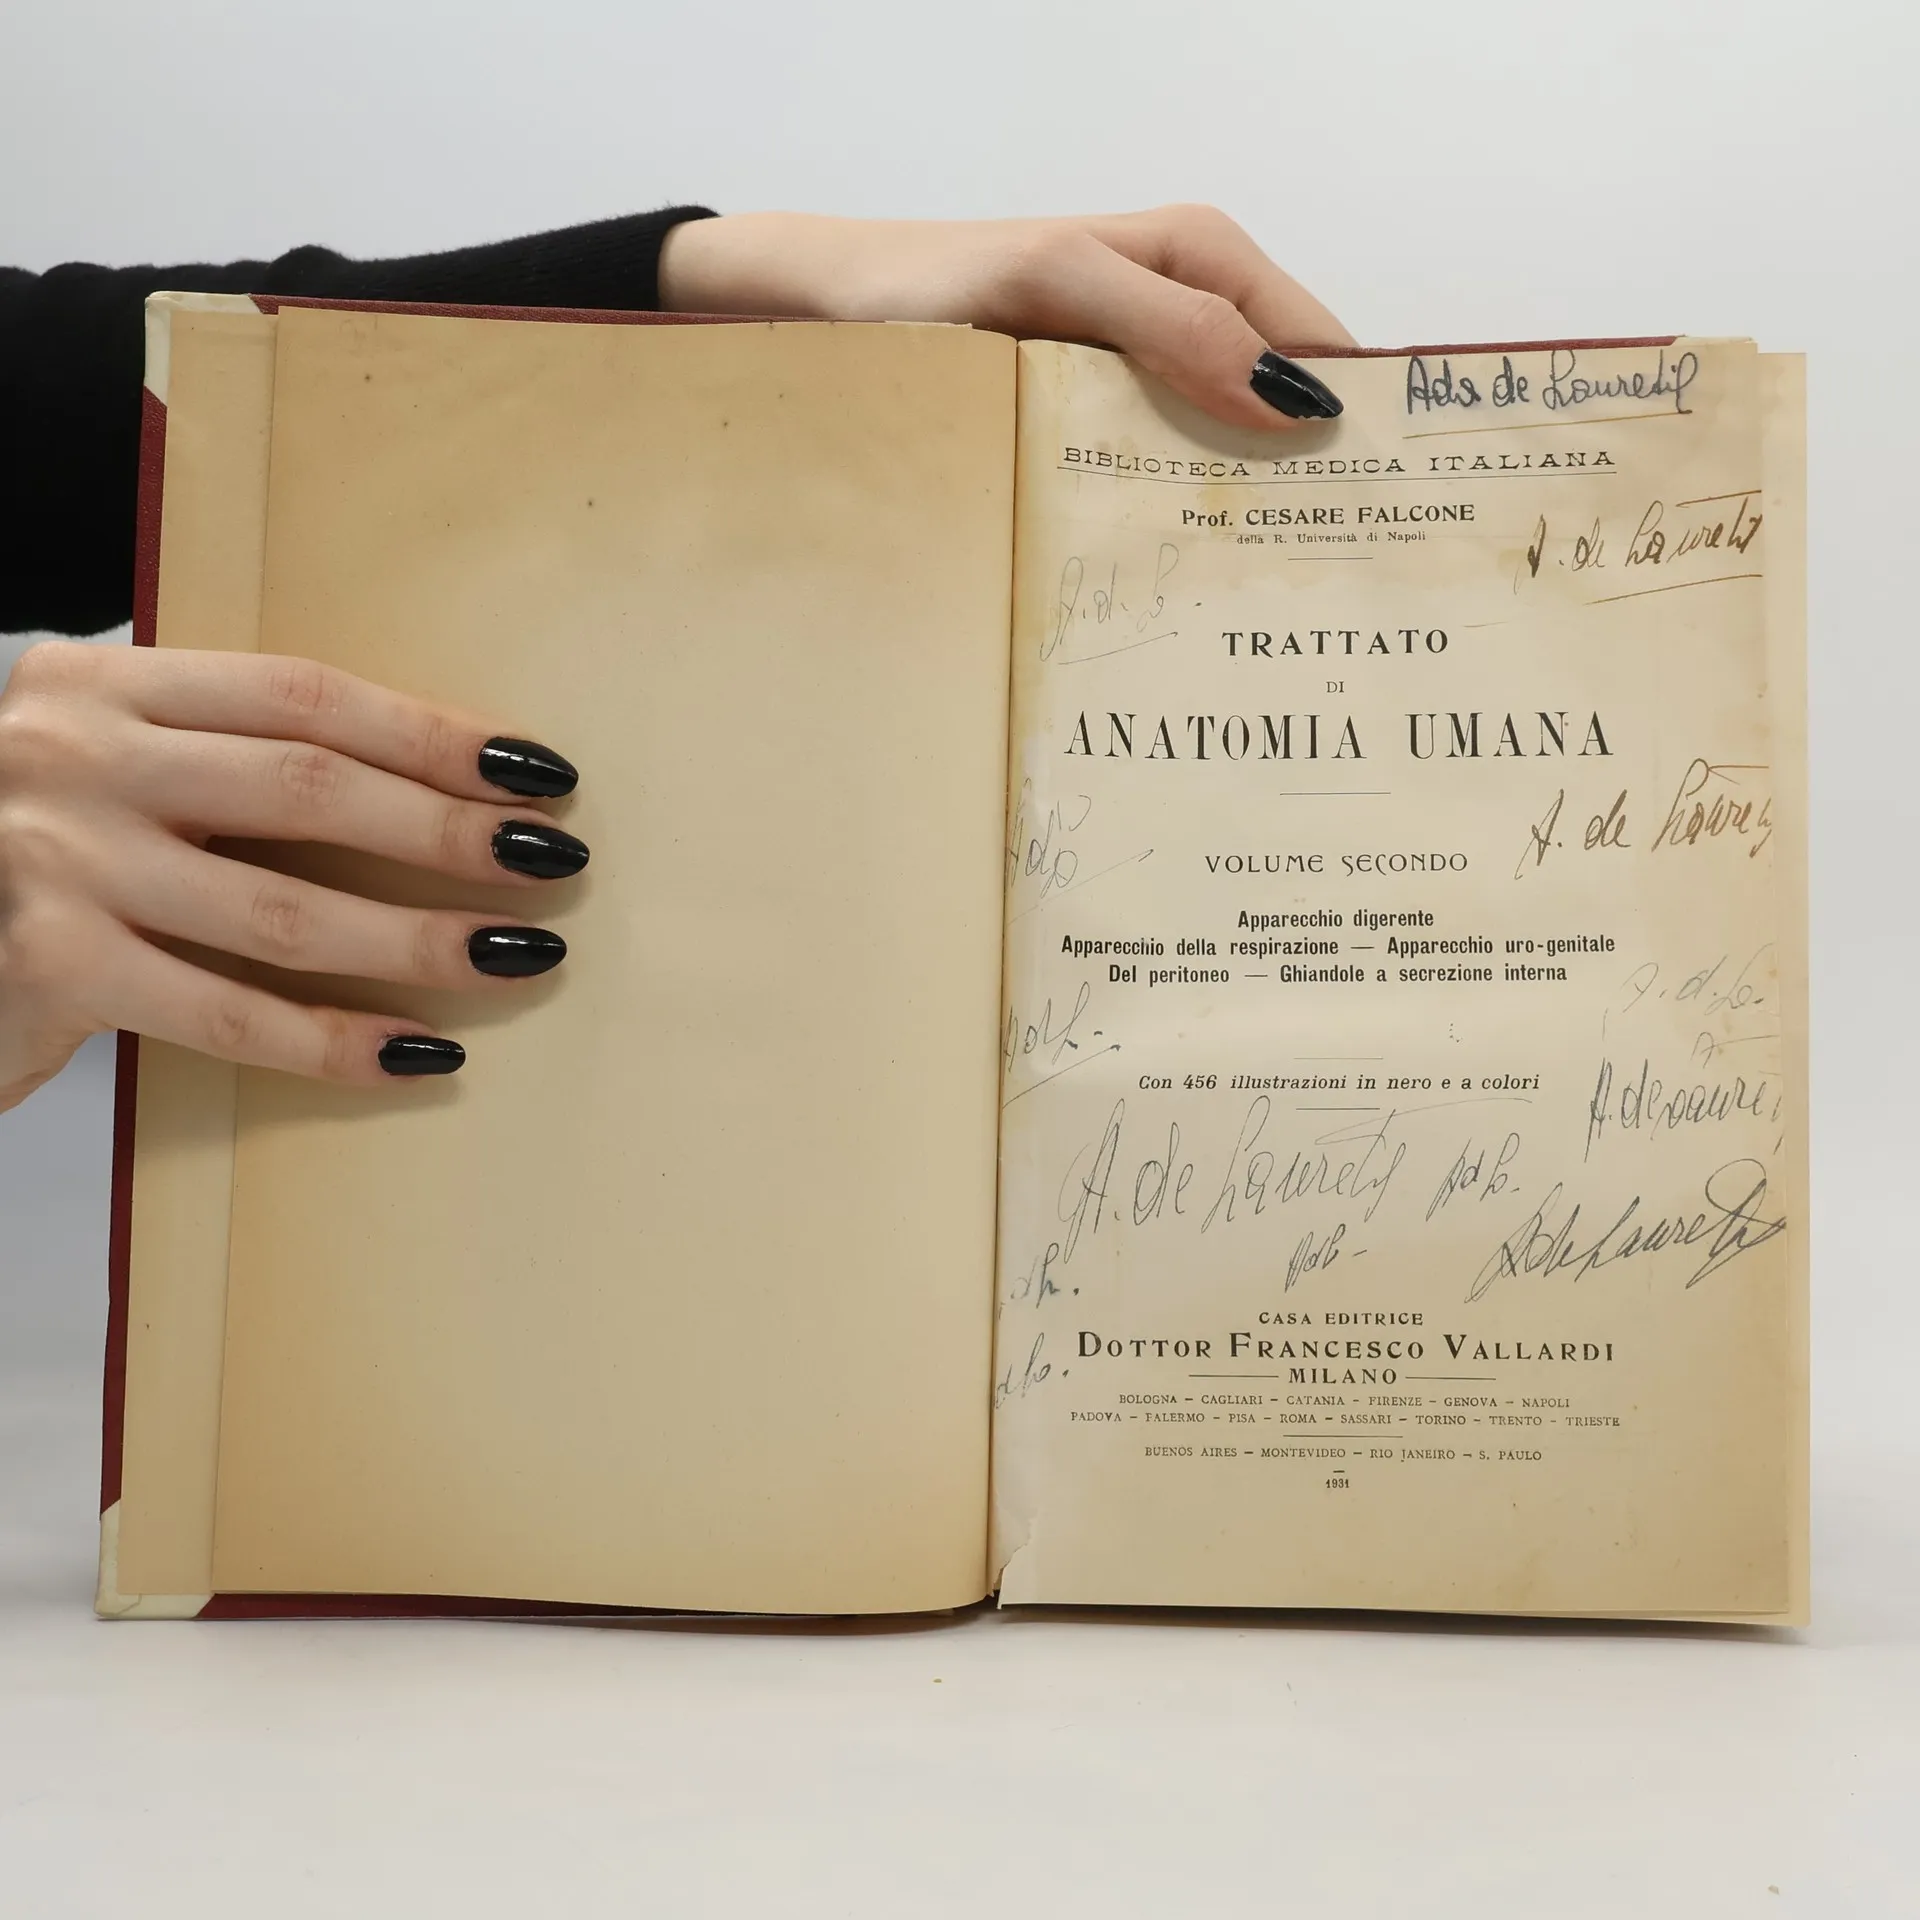 Ada de Lauretis
BIBLIOTECA MEDICA ITALIANA
Prof. CESARE FALCONE
della R. Università di Napoli
A. de Lauretis
A. d. L.
TRATTATO
DI
ANATOMIA UMANA
A. de Laureti
Ada
VOLUME SECONDO
Apparecchio digerente
Apparecchio della respirazione — Apparecchio uro-genitale
Del peritoneo — Ghiandole a secrezione interna
A. d. L.
AdL.
Con 456 illustrazioni in nero e a colori
A. de Laure
A. de Lauretis AdL.
AdL
A de Lauretis
dL.
dL.
CASA EDITRICE
DOTTOR FRANCESCO VALLARDI
MILANO
BOLOGNA – CAGLIARI – CATANIA – FIRENZE – GENOVA – NAPOLI
PADOVA – PALERMO – PISA – ROMA – SASSARI – TORINO – TRENTO – TRIESTE
BUENOS AIRES – MONTEVIDEO – RIO JANEIRO – S. PAULO
1931